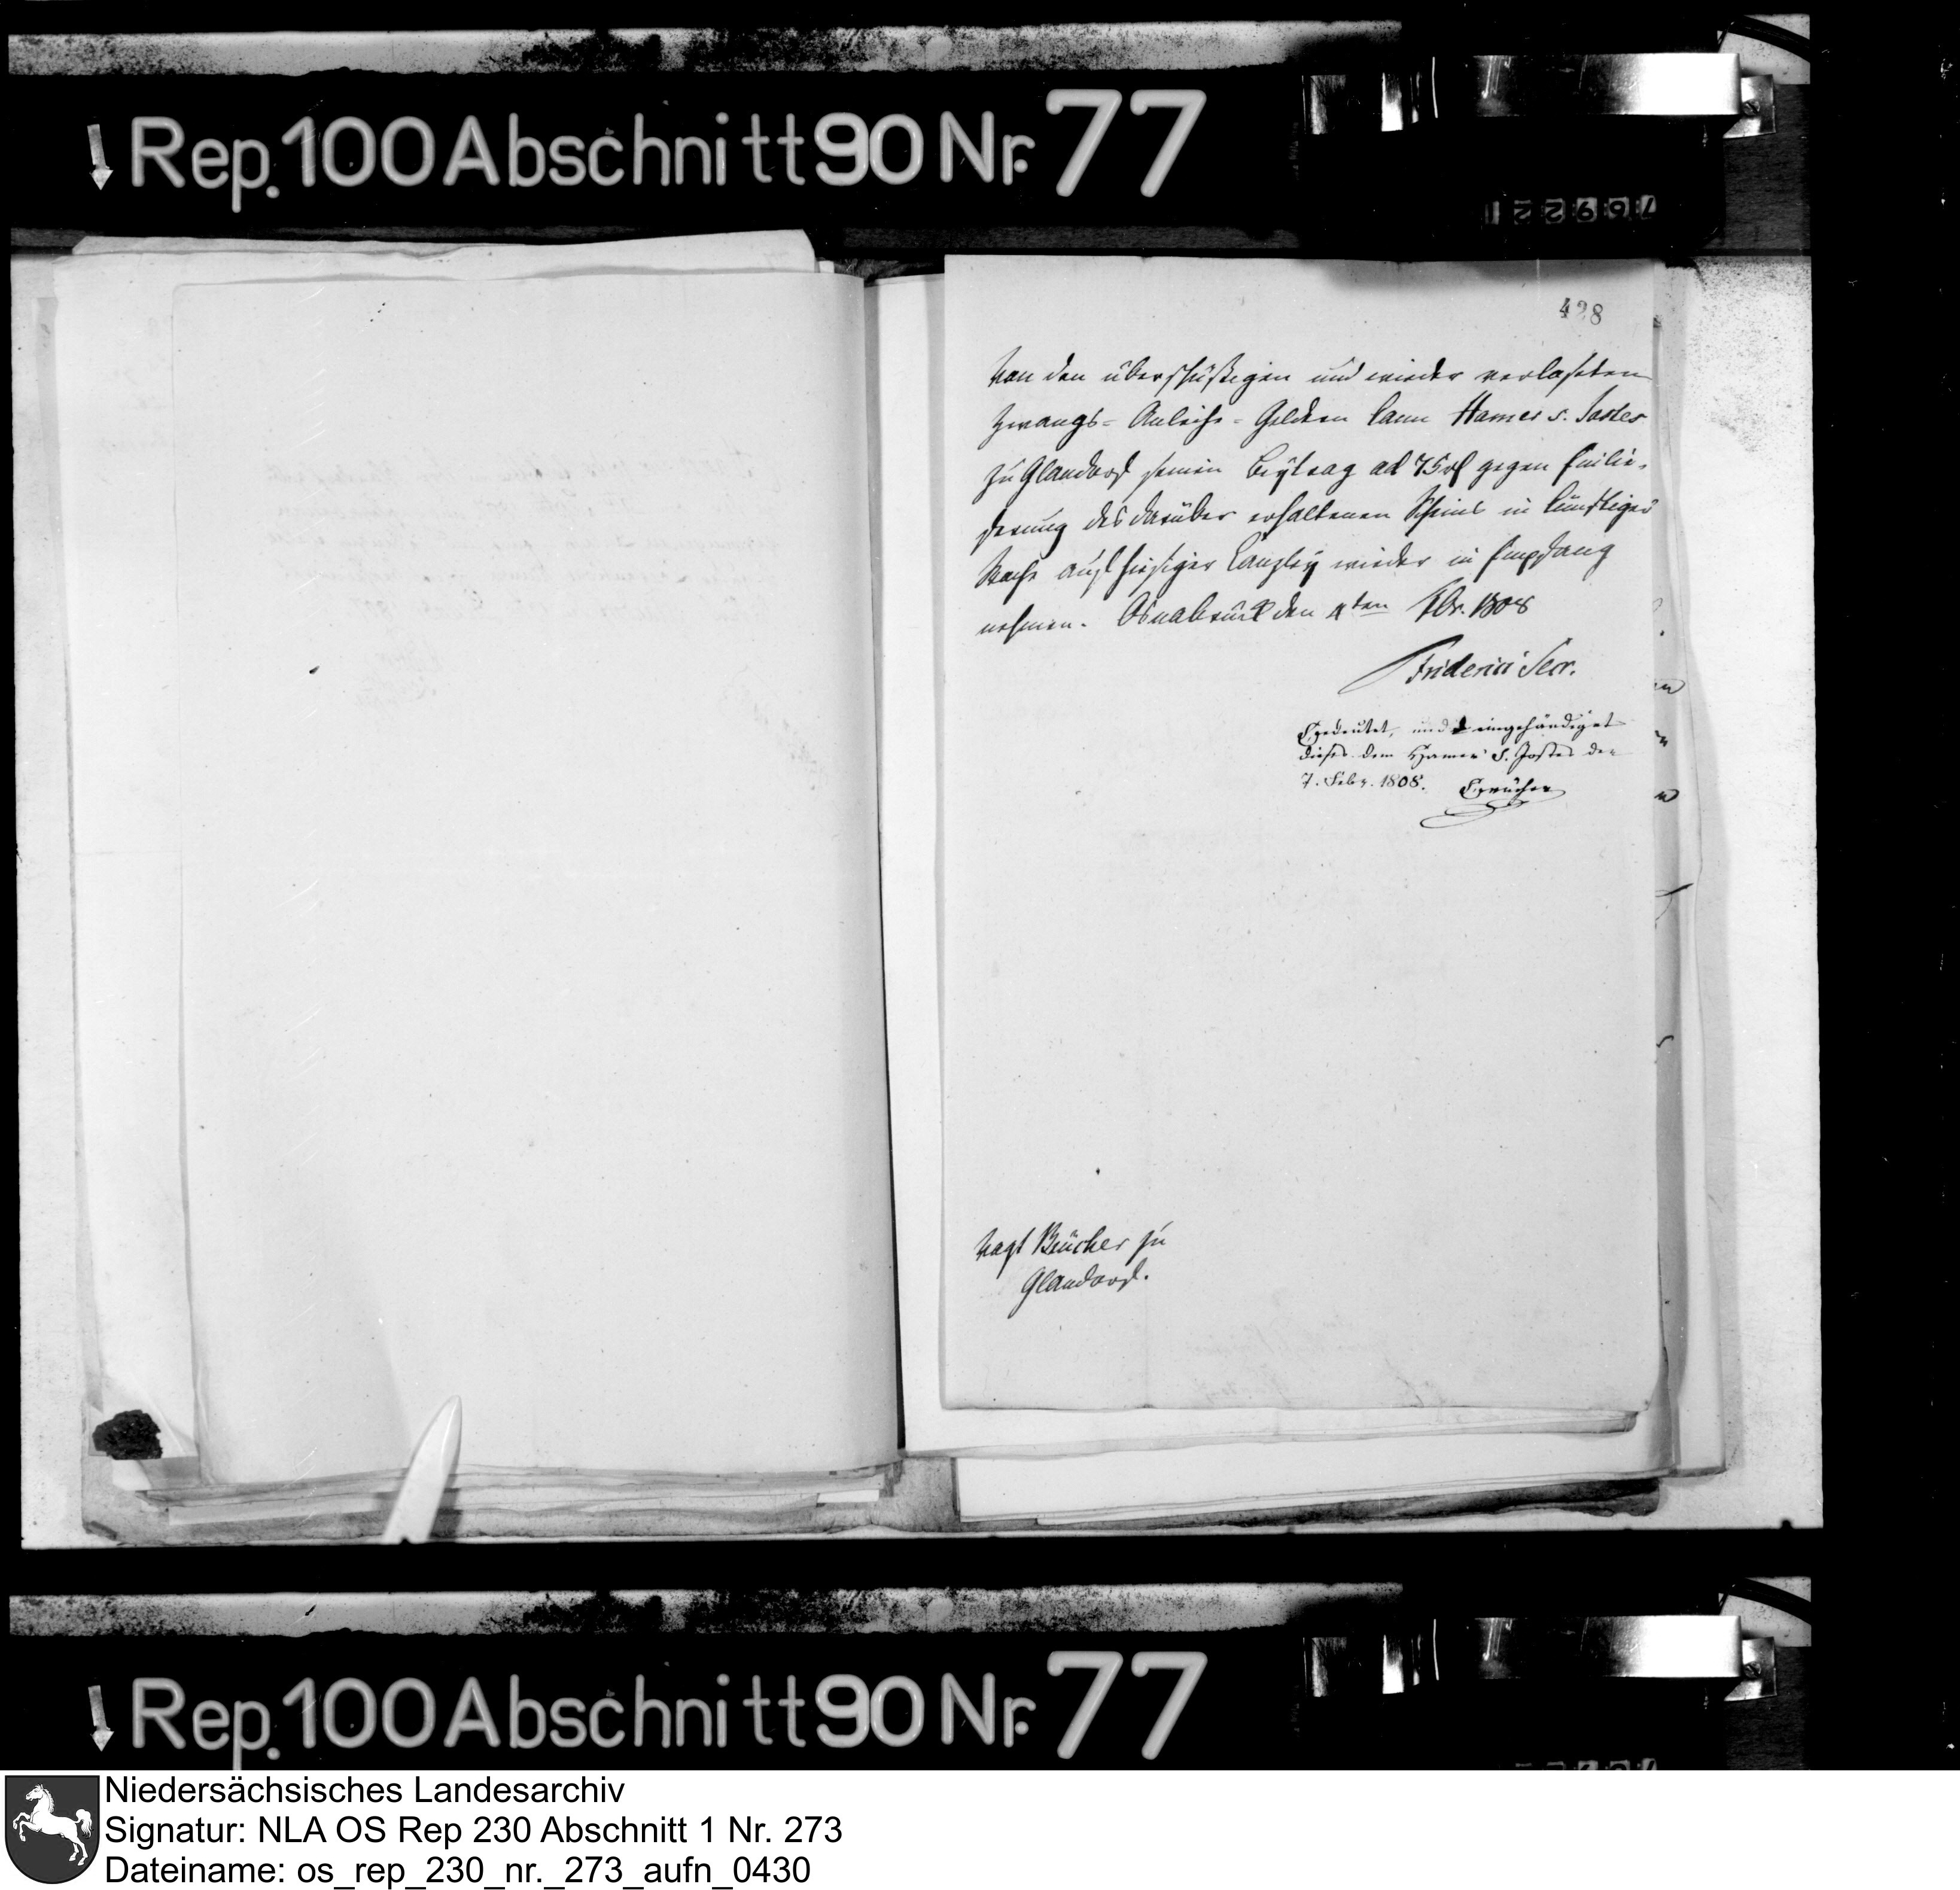 Rep. 100 Abschnitt 90 Nr. 77
428
Von den überflüßigen und wieder verlosten
Zwangs=Anleihe=Gelder kann Hamer s. Jostes
zu Glandorf seinen Beytrag ad 75 rf gegen Einlie-
ferung des darüber erhaltenen Scheins in künftiger
Woche auf hiesiger Canzley wieder in Empfang
nehmen. Osnabrück den 4ten Febr. 1808
Friderici Secr.
Bedeutet, und eingehändiget
dieses dem Hamer s. Jostes den
7. Febr. 1808. Brücher
Vogt Brücher zu
Glandorf.
Rep. 100 Abschnitt 90 Nr. 77
Niedersächsisches Landesarchiv
Signatur: NLA OS Rep 230 Abschnitt 1 Nr. 273
Dateiname: os_rep_230_nr._273_aufn_0430